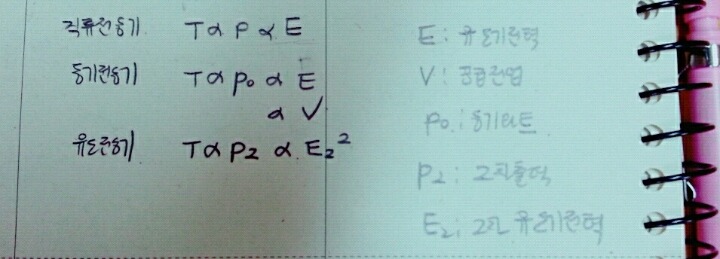 직류전동기 T∝P∝E
동기전동기 T∝P₀∝E
∝V
유도전동기 T∝P₂∝E₂²
E: 유도기전력
V: 공급전압
P₀: 동기와트
P₂: 2차출력
E₂: 2차 유도기전력